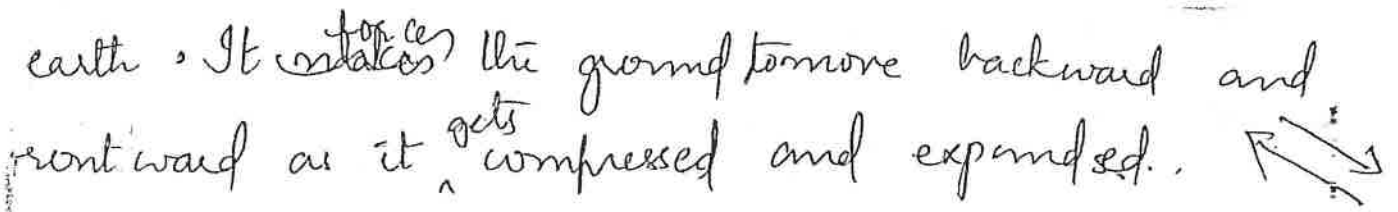 earth. It forces the ground to move backward and
frontward as it gets compressed and expandsed.